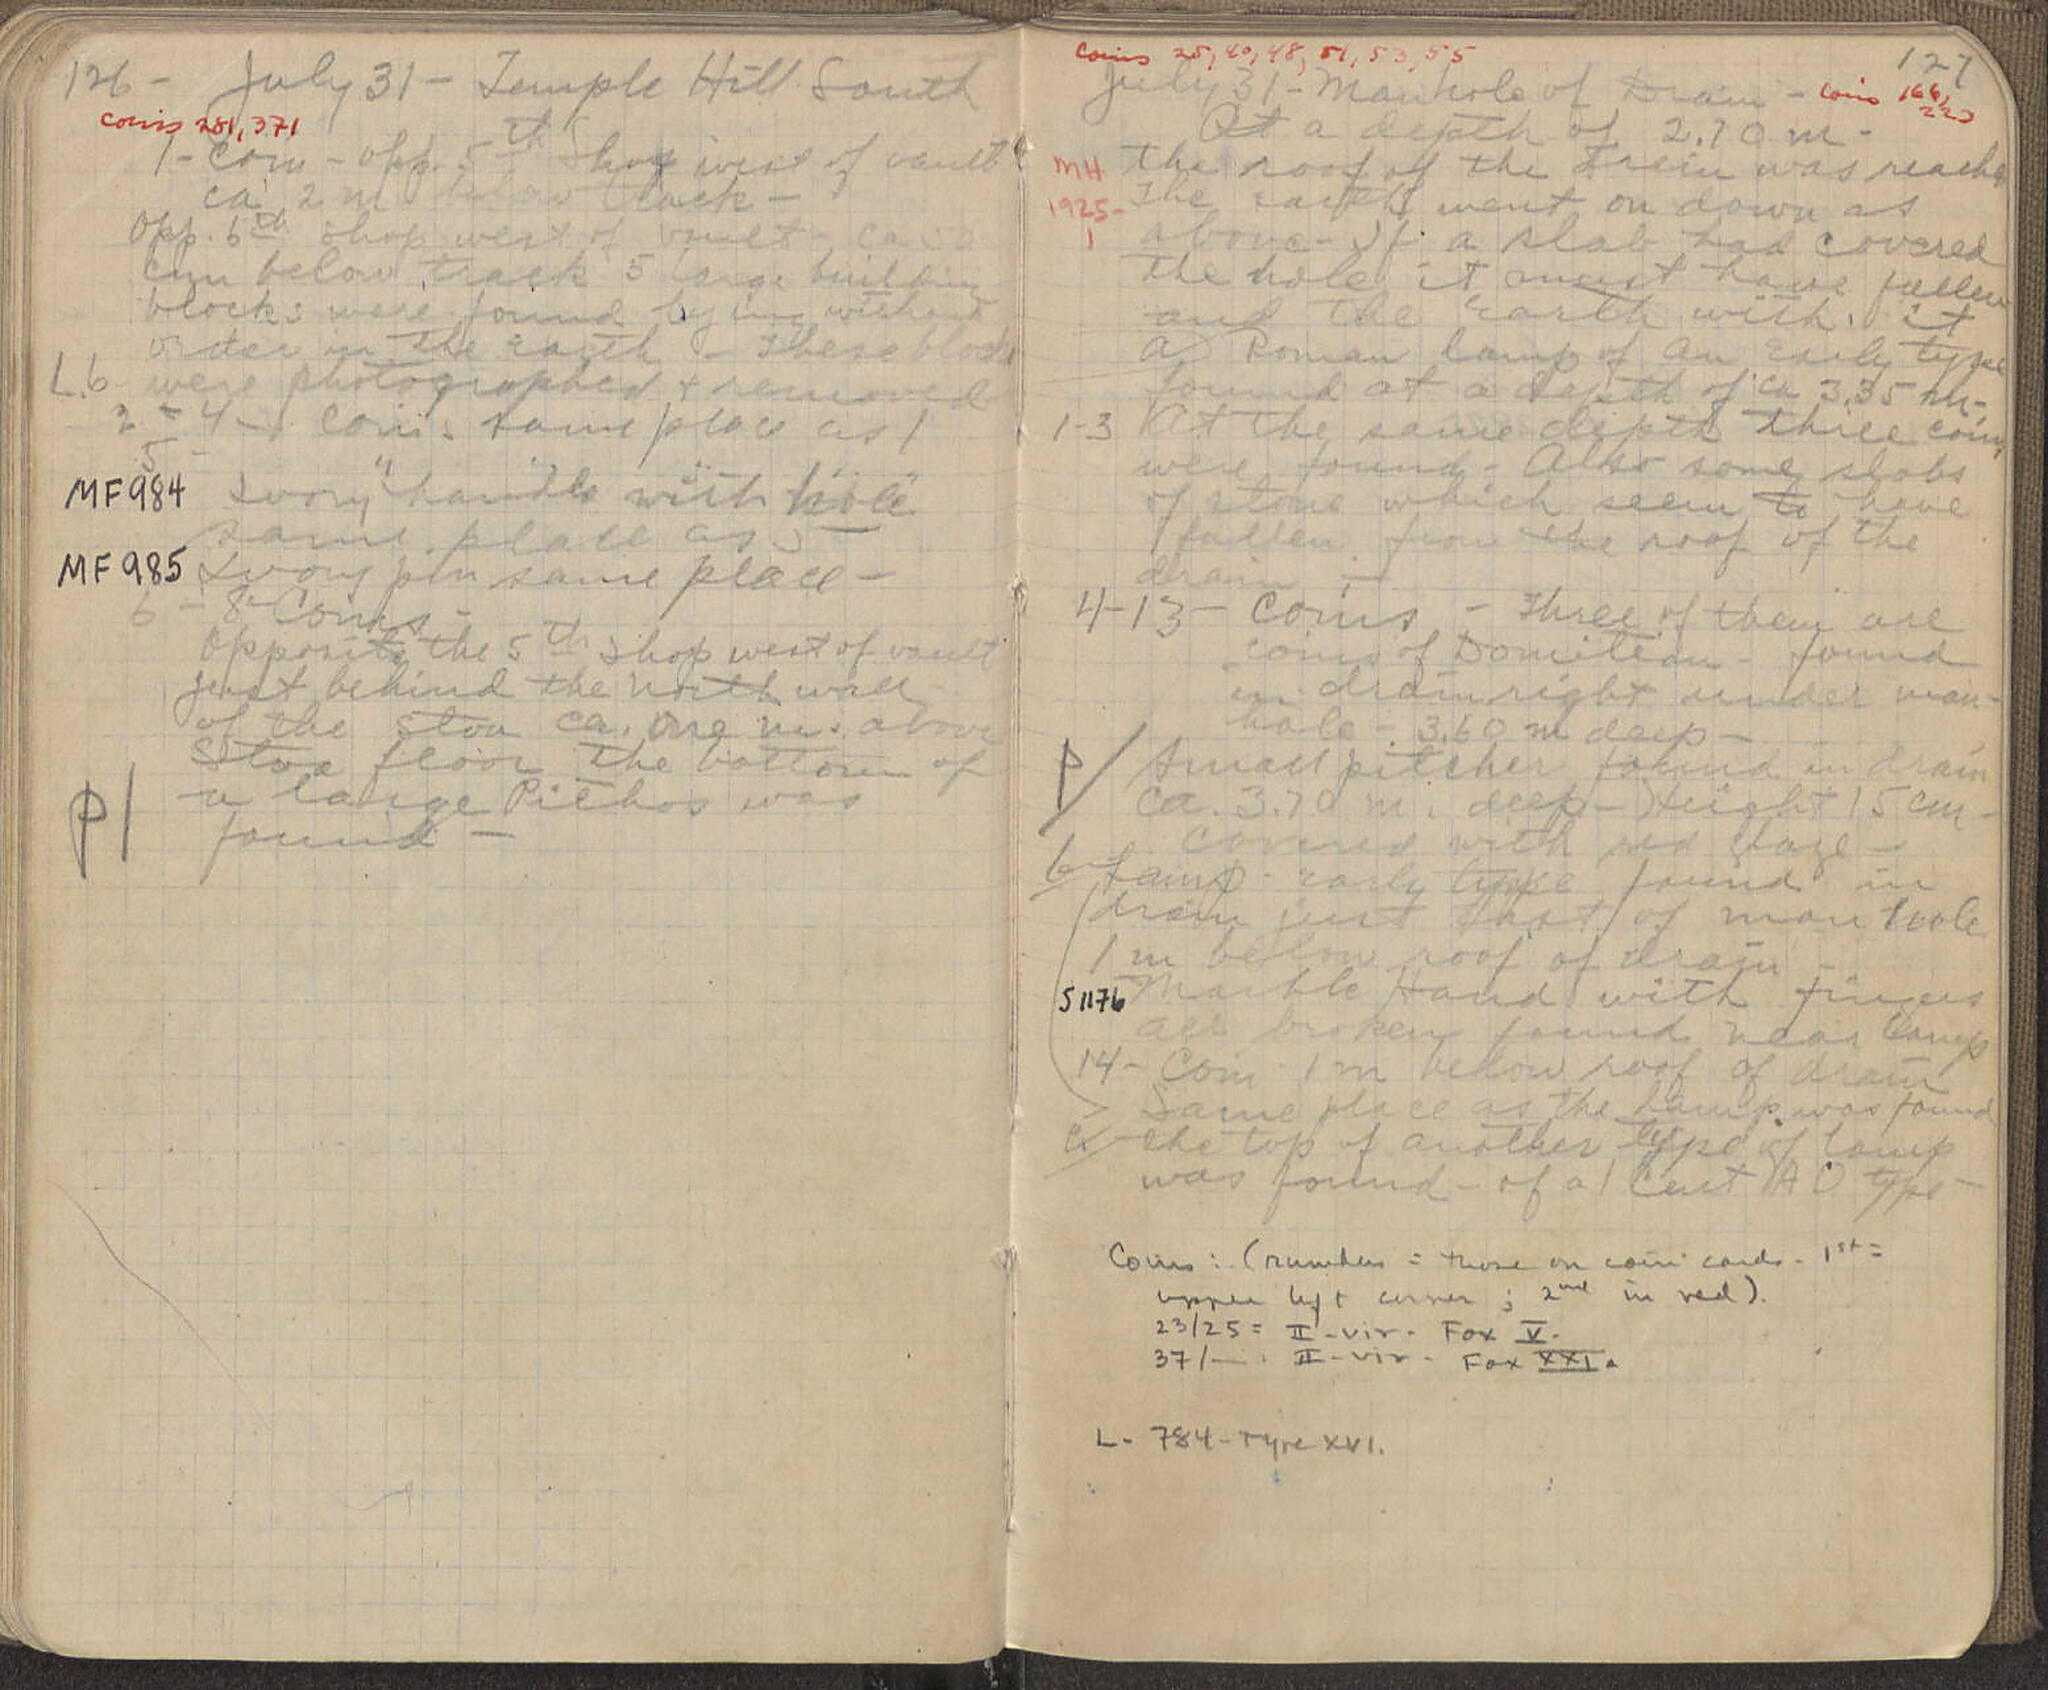 126 - July 31 - Temple Hill South
coins 281, 371
1 - Coin - opp. 5th Shop west of vault
ca 2 m below track -
Opp. 6th shop west of vault - ca
cm below track 5 large building
blocks were found lying without
order in the earth - These blocks
L.6 were photographed + removed
2 - 4 - Coins same place as 1
5 - " " " "
MF984 Ivory handle with hole
same place as 5 -
MF985 Ivory pin same place -
6 - 8 Coins -
Opposite the 5th Shop west of vault
just behind the north wall
of the stoa ca. one m. above
Stoa floor the bottom of
P/ a large Pithos was
found -
coins 25, 40, 48, 51, 53, 55
127
July 31 - Manhole of Drain - coins 166, 220
At a depth of 2.70 m -
MH 1925-1
the roof of the drain was reached
The earth went on down as
above - If a slab had covered
the hole it must have fallen
and the earth with it
a Roman lamp of an early type
found at a depth of ca 3.35 m -
1-3 At the same depth three coins
were found - Also some slabs
of stone which seem to have
fallen from the roof of the
drain -
4-13 - Coins - Three of them are
coins of Domitian - found
in drain right under man-
hole - 3.60 m deep -
P/ Small pitcher found in drain
ca. 3.70 m. deep - Height 15 cm -
covered with red glaze -
b Lamp - early type found in
drain just East of manhole
1 m below roof of drain -
S1176 Marble Hand with fingers
all broken found near lamp
14 - Coin 1 m below roof of drain
Same place as the lamp was found
c. the top of another type of lamp
was found - of a 1 Cent AD type -
Coins: (numbers = those on coin cards. 1st =
upper left corner; 2nd in red).
23/25 = II-vir. Fox V.
37/— . II-vir. Fox XXI.
L - 784 - Type XVI.